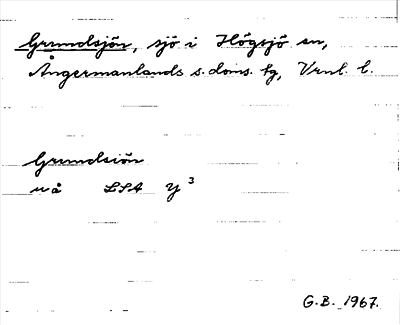 Grundsjön, sjö i Högsjö sn,
Ångermanlands s. doms. tg, Vrnl. l.
Grundsiön
u å LSA Y 3
G.B. 1967.